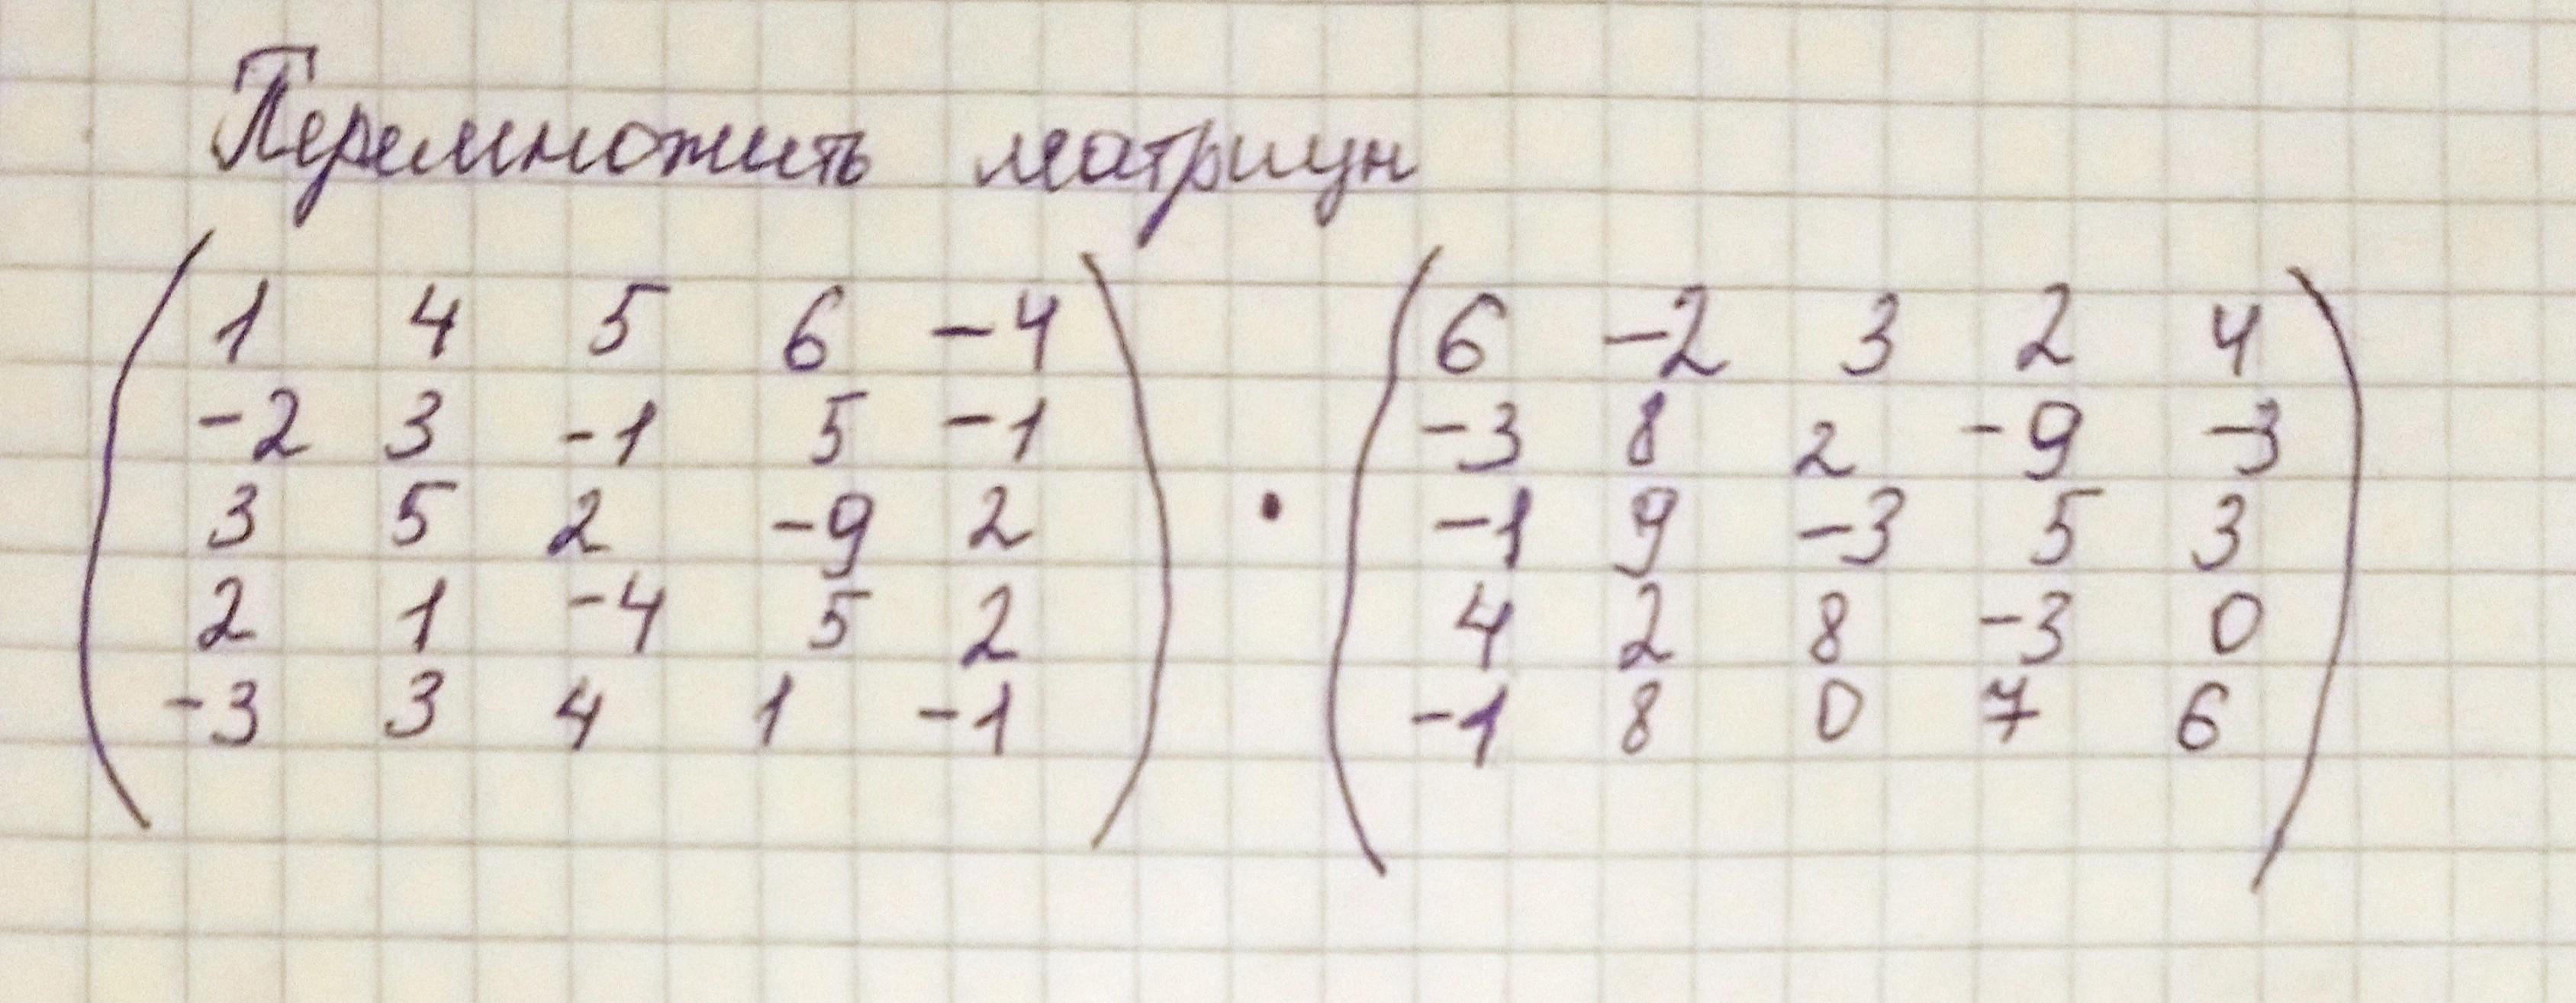 Перемножить матрицы
( 1 4 5 6 -4 ) · ( 6 -2 3 2 4 )
-2 3 -1 5 -1 -3 8 2 -9 -3
3 5 2 -9 2 -1 9 -3 5 3
2 1 -4 5 2 4 2 8 -3 0
-3 3 4 1 -1 -1 8 0 7 6